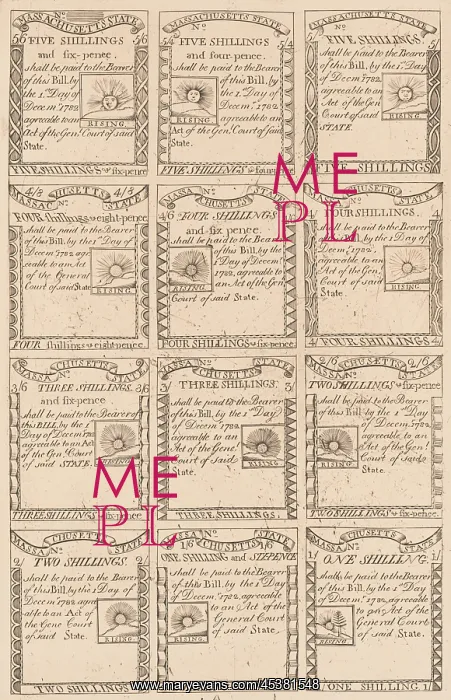 MASSACHUSETTS STATE
No
5/6 5/6
FIVE SHILLINGS
and six-pence.
shall be paid to the Bearer
of this Bill, by
the 1st Day of
Decem. 1782
agreeable to an
Act of the Genl. Court of said
State.
RISING
FIVE SHILLINGS & six-pence
MASSACHUSETTS STATE
No
5/4 5/4
FIVE SHILLINGS
and four-pence.
shall be paid to the Bearer
of this Bill, by
the 1st Day of
Decemr. 1782
agreeable to an
Act of the Genl. Court of said
State.
RISING
FIVE SHILLINGS & four
MASSACHUSETTS STATE
No
5/ 5/
FIVE SHILLINGS.
shall be paid to the Bearer
of this Bill, by the 1st Day
of Decemr. 1782
agreeable to an
Act of the Gen
Court of said
STATE.
RISING
FIVE SHILLINGS
MASSACHUSETTS STATE
4/8 4/8
FOUR shillings & eight-pence
shall be paid to the Bearer
of this Bill, by the 1st Day of
Decemr. 1782 agre
eable to an Act
of the General
Court of said
State.
RISING
FOUR shillings & eight-pence
MASSACHUSETTS STATE
No
4/6
FOUR SHILLINGS
and six pence.
shall be paid to the Bearer
of this Bill, by
the 1st Day of Decemr.
1782, agreeable to
an Act of the Genl.
Court of said State.
RISING
FOUR SHILLINGS & six-pence
MASSACHUSETTS STATE
4/ 4/
FOUR SHILLINGS.
shall be paid to the Bearer
of this Bill, by the 1st Day of
Decemr. 1782,
agreeable to an
Act of the Gen
Court of said
State.
RISING
4/ FOUR SHILLINGS 4/
MASSACHUSETTS STATE
No
3/6 3/6
THREE SHILLINGS.
and six-pence.
shall be paid to the Bearer of
this Bill, by the 1st
Day of Decem
agreeable to an Act
of the Genl. Court
of said STATE.
RISING.
THREE SHILLINGS & six-pence
MASSACHUSETTS STATE
No
3/ 3/
THREE SHILLINGS.
shall be paid to the Bearer
of this Bill, by the 1st Day
of Decemr. 1782,
agreeable to an
Act of the Genl.
Court of said
State.
RISING.
THREE SHILLINGS.
MASSACHUSETTS STATE
No
2/6 2/6
TWO SHILLINGS & six-pence
shall be paid to the Bearer
of this Bill by the 1st Day
of Decemr. 1782,
agreeable to an
Act of the Genl.
Court of said
State.
RISING.
TWO SHILLINGS & six-pence.
MASSACHUSETTS STATE
No
2/ 2/
TWO SHILLINGS.
shall be paid to the Bearer
of this Bill, by the 1st Day of
Decemr. 1782, agre
able to an Act of
the Genl Court
of said State.
RISING.
TWO SHILLINGS
MASSACHUSETTS STATE
No
1/6 1/6
ONE SHILLING and SIXPENCE
shall be paid to the Bearer of
this Bill, by the 1st Day of
Decemr. 1782, agreeable
to an Act of the
General Court
of said State.
RISING.
MASSACHUSETTS STATE
No
1/ 1/
ONE SHILLING.
shall be paid to the Bearer of
this Bill, by the 1st Day of
Decemr. 1782, agreeable
to an Act of the
General Court
of said State.
RISING.
1/ ONE SHILLING 1/
ME
PL
ME
PL
www.maryevans.com/45381548